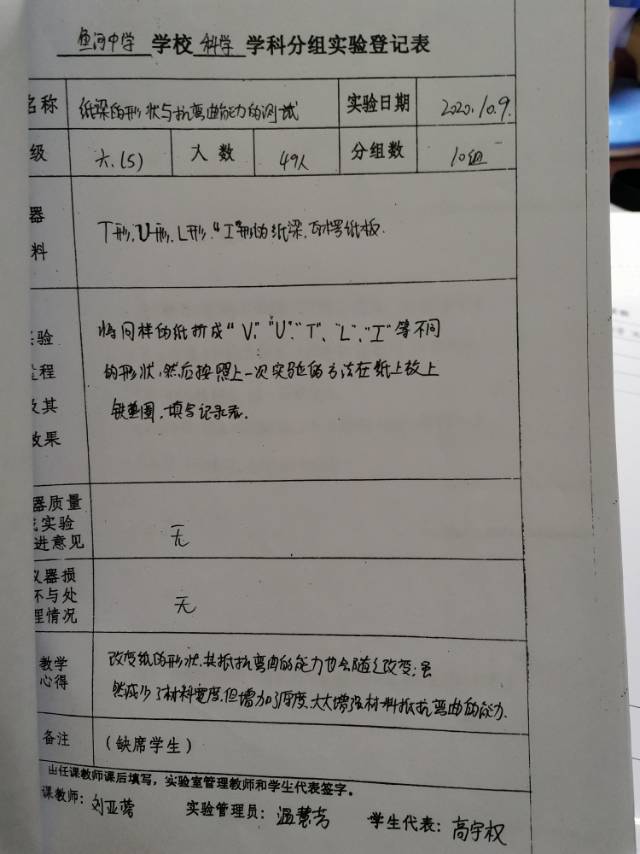 鱼河中学 学校 科学 学科分组实验登记表
名称 纸梁的形状与抗弯曲能力的测试 实验日期 2020.10.9.
级 六.(5) 人数 49人 分组数 10组
器
料
T形,U形,L形."工"形的纸梁,瓦楞纸板.
验
程
及其
效果
将同样的纸折成"V"."U"."T"、"L"、"工"等不同
的形状,然后按照上一次实验的方法在纸上放上
铁垫圈,填写记录表.
器质量
实验
进意见
无
仪器损
坏与处
理情况
无
教学
心得
改变纸的形状,其抵抗弯曲的能力也会随之改变;虽
然减少了材料宽度,但增加了厚度,大大增强材料抵抗弯曲的能力.
备注 (缺席学生)
由任课教师课后填写,实验室管理教师和学生代表签字。
课教师: 刘亚蓉 实验管理员: 温慧芳 学生代表: 高宇权